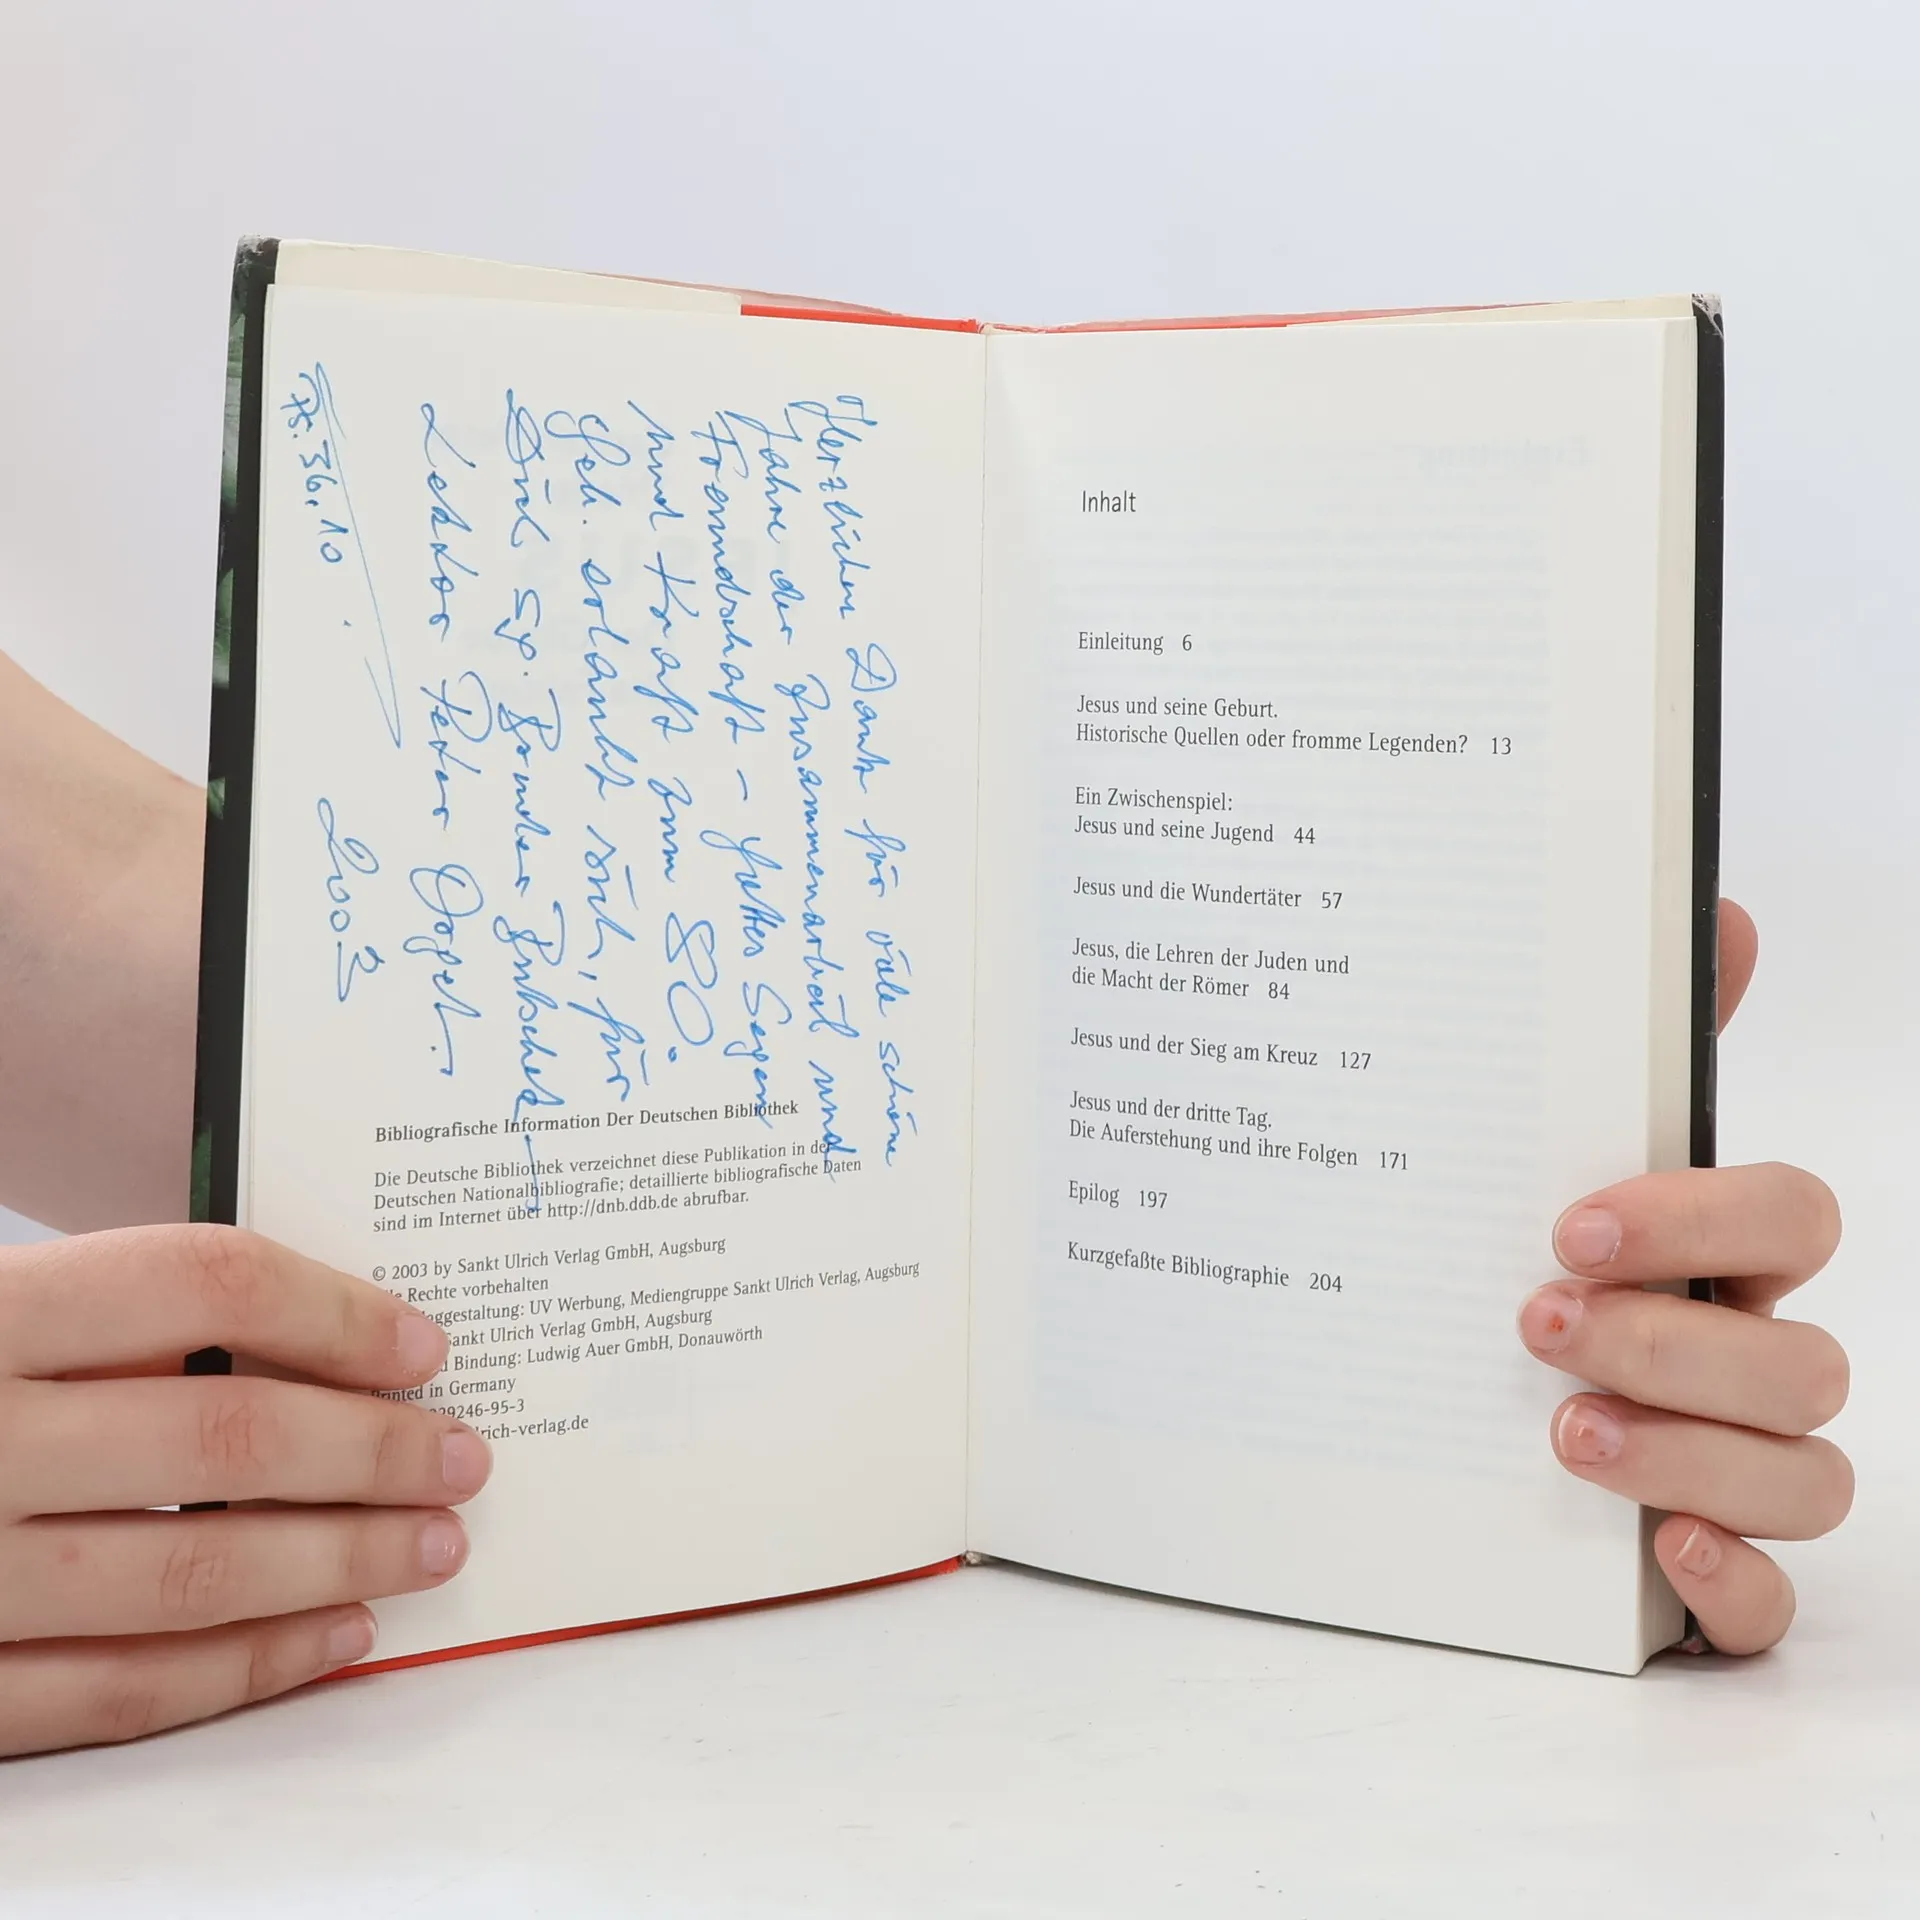 Herzlichen Dank für viele schöne
Jahre der Zusammenarbeit und
Freundschaft – Gottes Segen
und Kraft zum 80.
Geb. erlaubt sich, für
Dich Bruder
Lektor Peter
Ps. 36,10
2003
Bibliografische Information Der Deutschen Bibliothek
Die Deutsche Bibliothek verzeichnet diese Publikation in der
Deutschen Nationalbibliografie; detaillierte bibliografische Daten
sind im Internet über http://dnb.ddb.de abrufbar.
© 2003 by Sankt Ulrich Verlag GmbH, Augsburg
Rechte vorbehalten
laggestaltung: UV Werbung, Mediengruppe Sankt Ulrich Verlag, Augsburg
Sankt Ulrich Verlag GmbH, Augsburg
d Bindung: Ludwig Auer GmbH, Donauwörth
Printed in Germany
29246-95-3
lrich-verlag.de
Inhalt
Einleitung 6
Jesus und seine Geburt.
Historische Quellen oder fromme Legenden? 13
Ein Zwischenspiel:
Jesus und seine Jugend 44
Jesus und die Wundertäter 57
Jesus, die Lehren der Juden und
die Macht der Römer 84
Jesus und der Sieg am Kreuz 127
Jesus und der dritte Tag.
Die Auferstehung und ihre Folgen 171
Epilog 197
Kurzgefaßte Bibliographie 204